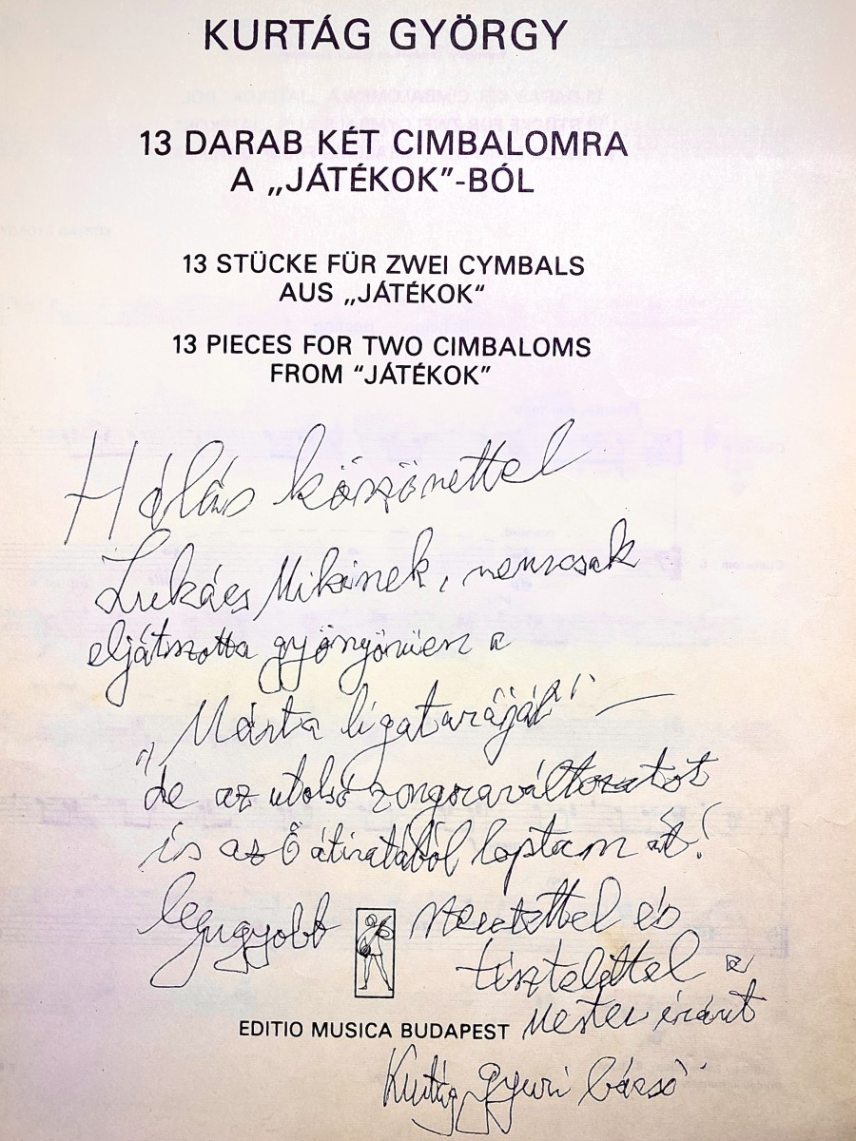 KURTÁG GYÖRGY
13 DARAB KÉT CIMBALOMRA
A „JÁTÉKOK”-BÓL
13 STÜCKE FÜR ZWEI CYMBALS
AUS „JÁTÉKOK“
13 PIECES FOR TWO CIMBALOMS
FROM “JÁTÉKOK”
Hálás köszönettel
Lukács Mikinek, nemcsak
eljátszotta gyönyörűen a
„Márta ligaturáját” —
de az utolsó zongoraváltozatot
is az Ő átiratából loptam át!
legnagyobb szeretettel és
tisztelettel a
Mester iránt
EDITIO MUSICA BUDAPEST
Kurtág Gyuri bácsi